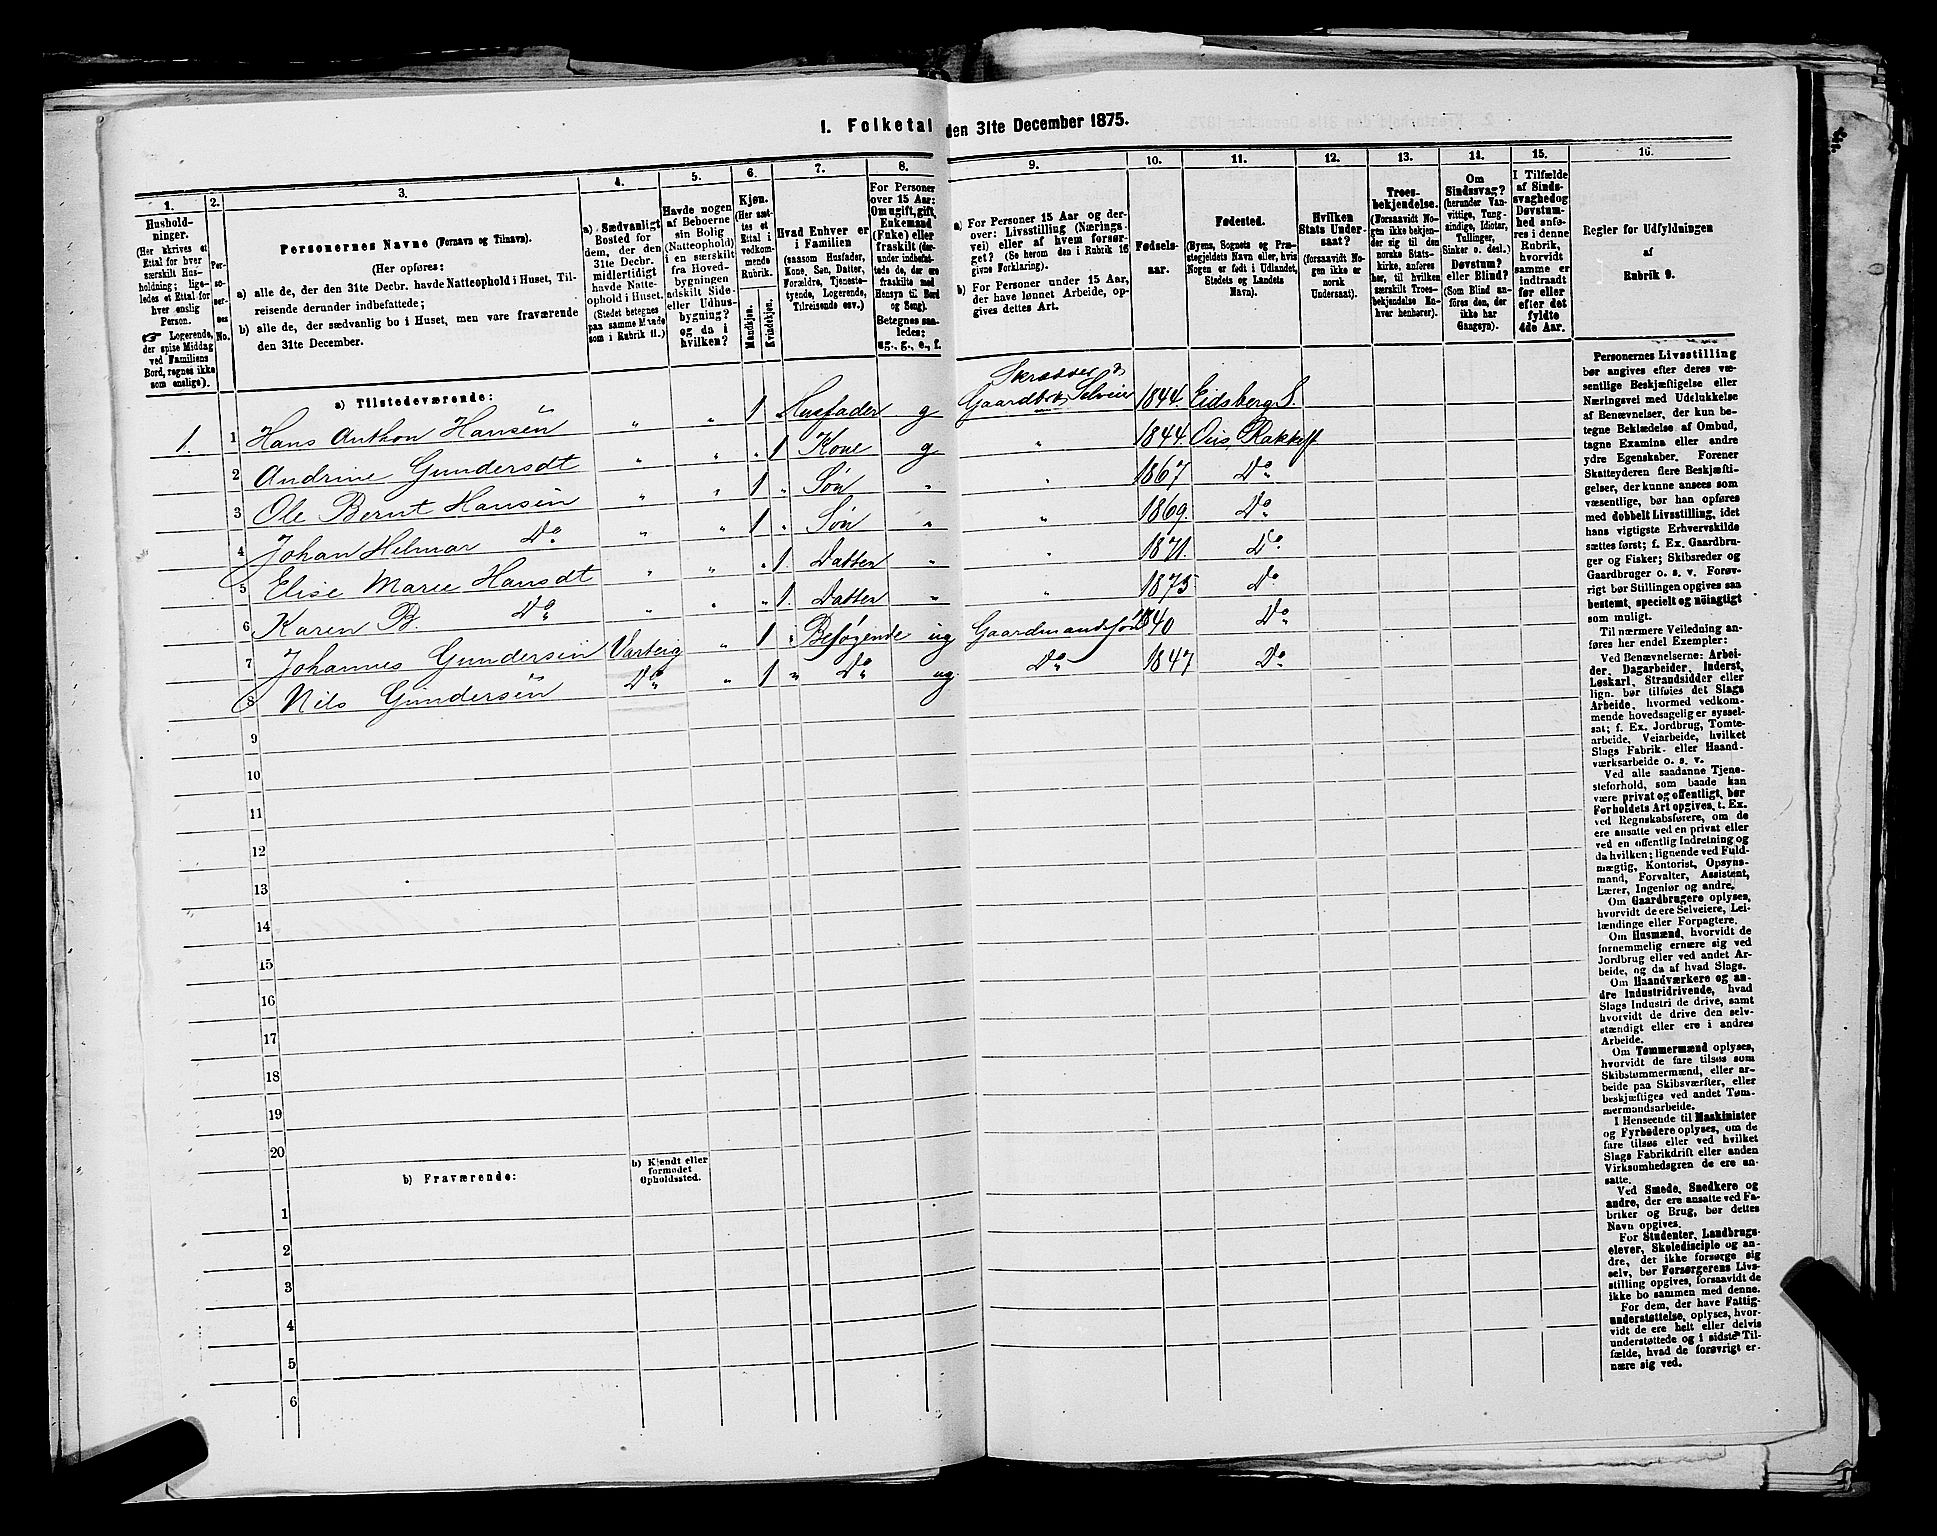 1. Folketal den 31te December 1875.
1. 2. 3. 4. 5. 6. 7. 8. 9. 10. 11. 12. 13. 14. 15. 16.
Hushold-
ninger.
(Her skrives et
Ettal for hver
særskilt Hus-
holdning; lige-
ledes et Ettal for
hver enslig
Person.
☞ Logerende,
der spise Middag
ved Familiens
Bord, regnes ikke
som enslige).
Per-
so-
ner-
nes
No.
Personernes Navne (Fornavn og Tilnavn).
(Her opføres:
a) alle de, der den 31te Decbr. havde Natteophold i Huset, Til-
reisende derunder indbefattede;
b) alle de, der sædvanlig bo i Huset, men vare fraværende
den 31te December.
a) Sædvanligt
Bosted for
dem, der den
31te Decbr.
midlertidigt
havde Natte-
ophold i Huset.
(Stedet betegnes
paa samme Maade
som i Rubrik 11.)
Havde nogen
af Beboerne
sin Bolig
(Natteophold)
i en særskilt
fra Hoved-
bygningen
adskilt Side-
eller Udhus-
bygning?
og da i
hvilken?
Kjøn.
(Her sæt-
tes et
Ettal i
vedkom-
mende
Rubrik.
Mandkjøn.
Kvindekjøn.
Hvad Enhver er
i Familien
(saasom Husfader,
Kone, Søn, Datter,
Forældre, Tjeneste-
tyende, Logerende,
Tilreisende osv.)
For Personer
over 15 Aar:
Om ugift, gift,
Enkemand
(Enke) eller
fraskilt (der-
under indbefat-
tede de, der ere
fraskilte med
Hensyn til Bord
og Seng).
Betegnes saa-
ledes:
ug., g., e., f.
a) For Personer 15 Aar og der-
over: Livsstilling (Nærings-
vei) eller af hvem forsør-
get? (Se herom den i Rubrik 16
givne Forklaring).
b) For Personer under 15 Aar,
der have lønnet Arbeide, op-
gives dettes Art.
Fødsels-
aar.
Fødested.
(Byens, Sognets og Præ-
stegjeldets Navn eller, hvis
Nogen er født i Udlandet,
Stedets og Landets
Navn).
Hvilken
Stats Under-
saat?
(forsaavidt No-
gen ikke er
norsk
Undersaat).
Troes-
bekjendelse.
(Forsaavidt No-
gen ikke bekjen-
der sig til den
norske Stats-
kirke, anføres
her, til hvilken
særskilt Troes-
bekjendelse En-
hver henhører).
Om
Sindssvag?
(herunder Van-
vittige, Tung-
sindige, Idioter,
Tullinger,
Sinker o. desl.)
Døvstum?
eller Blind?
(Som Blind an-
føres den, der
ikke har
Gangsyn).
I Tilfælde
af Sinds-
svaghed og
Døvstum-
hed anfø-
res i denne
Rubrik,
hvorvidt
samme er
indtraadt
før eller
efter det
fyldte
4de Aar.
Regler for Udfyldningen
af
Rubrik 9.
a) Tilstedeværende:
Skrædder &
1. 1 Hans Anthon Hansen " " 1 Husfader g Gaardbr. Selveier 1844. Eidsberg S
2 Andrine Gundersdt " " " 1 Kone g " 1844. Oiis, Rakkest
3 Ole Bernt Hansen " " 1 " Søn " " 1867 Do
4 Johan Helmar Do " " 1 " Søn " " 1869. Do
5 Elise Marie Hansdt " " " 1. Datter " " 1871. Do
6 Karen B. Do " " " 1. Datter " " 1875 Do
7 Johannes Gundersen Varteig " 1 " Besøgende ug Gaardmandssøn 1840 Do
8 Nils Gundersen Do " 1 " Do ug Do 1847 Do
9
10
11
12
13
14
15
16
17
18
19
20
b) Fraværende:
b) Kjendt eller
formodet
Opholdssted.
1
2
3
4
5
6
Personernes Livsstilling
bør angives efter deres væ-
sentlige Beskjæftigelse eller
Næringsvei med Udelukkelse
af Benævnelser, der kun be-
tegne Beklædelse af Ombud,
tagne Examina eller andre
ydre Egenskaber. Forener
Skatteyderen flere Beskjæfti-
gelser, der kunne ansees som
væsentlige, bør han opføres
med dobbelt Livsstilling, idet
hans vigtigste Erhvervskilde
sættes først; f. Ex. Gaardbru-
ger og Fisker; Skibsreder og
Gaardbruger o. s. v. Forøv-
rigt bør Stillingen opgives saa
bestemt, specielt og nøiagtigt
som muligt.
Til nærmere Veiledning an-
føres her endel Exempler:
Ved Benævnelserne: Arbei-
der, Dagarbeider, Inderst,
Løskarl, Strandsidder eller
lign. bør tilføies det Slags
Arbeide, hvormed vedkom-
mende hovedsagelig er syssel-
sat; f. Ex. Jordbrug, Tomte-
arbeide, Veiarbeide, hvilket
Slags Fabrik- eller Haand-
værksarbeide o. s. v.
Ved alle saadanne Tjene-
steforhold, som baade kan
være privat og offentligt, bør
Forholdets Art opgives, t. Ex.
ved Regnskabsførere, om de
ere ansatte ved en privat eller
ved en offentlig Indretning og
da hvilken; lignende ved Fuld-
mægtig, Kontorist, Opsyns-
mand, Forvalter, Assistent,
Lærer, Ingeniør og andre.
Om Gaardbrugere oplyses,
hvorvidt de ere Selveiere, Lei-
lændinge eller Forpagtere.
Om Husmænd, hvorvidt de
fornemmelig ernære sig ved
Jordbrug eller ved andet Ar-
beide, og da af hvad Slags.
Om Haandværkere og an-
dre Industridrivende, hvad
Slags Industri de drive, samt
hvorvidt de drive den selv-
stændigt eller ere i andres
Arbeide.
Om Tømmermænd oplyses,
hvorvidt de fare tilsøs som
Skibstømmermænd, eller ar-
beide paa Skibsværfter, eller
beskjæftiges ved andet Tøm-
mermandsarbeide.
I Henseende til Maskinister
og Fyrbødere oplyses, om de
fare tilsøs eller ved hvilket
Slags Fabrikdrift eller anden
Virksomhedsgren de ere an-
satte.
Ved Smede, Snedkere og
andre, der ere ansatte ved Fa-
briker og Brug, bør dettes
Navn opgives.
For Studenter, Landbrugs-
elever, Skoledisciple og an-
dre, der ikke forsørge sig
selv, bør Forsørgerens Livs-
stilling opgives, forsaavidt de
ikke bo sammen med denne.
For dem, der have Fattig-
understøttelse, oplyses, hvor-
vidt de ere helt eller delvis
understøttede og i sidste Til-
fælde, hvad de forøvrigt er-
nære sig ved.